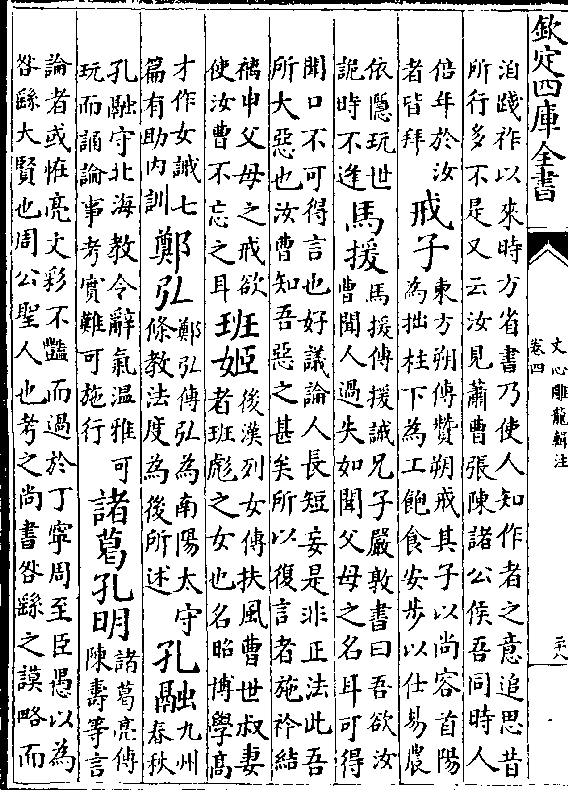 欽定四庫全書
文心雕龍輯注
卷四
二十八
洎踐祚以來時方省書乃使人知作者之意追思昔
所行多不是又云汝見蕭曹張陳諸公侯吾同時人
倍年於汝
者皆拜
戒子
東方朔傳贊朔戒其子以尚容首陽
為拙柱下為工飽食安步以仕易農
依隱玩世
詭時不逢
馬援
馬援傳援誡兄子嚴敦書曰吾欲汝
曹聞人過失如聞父母之名耳可得
聞口不可得言也好議論人長短妄是非正法此吾
所大惡也汝曹知吾惡之甚矣所以復言者施衿結
褵申父母之戒欲
使汝曹不忘之耳
班姬
後漢列女傳扶風曹世叔妻
者班彪之女也名昭博學髙
才作女誡七
篇有助内訓
鄭弘
鄭弘傳弘為南陽太守
條教法度為後所述
孔融
九州
春秋
孔融守北海教令辭氣温雅可
玩而誦論事考實難可施行
諸葛孔明
諸葛亮傳
陳壽等言
論者或恠亮文彩不豔而過於丁寧周至臣愚以為
咎繇大賢也周公聖人也考之尚書咎繇之謨略而